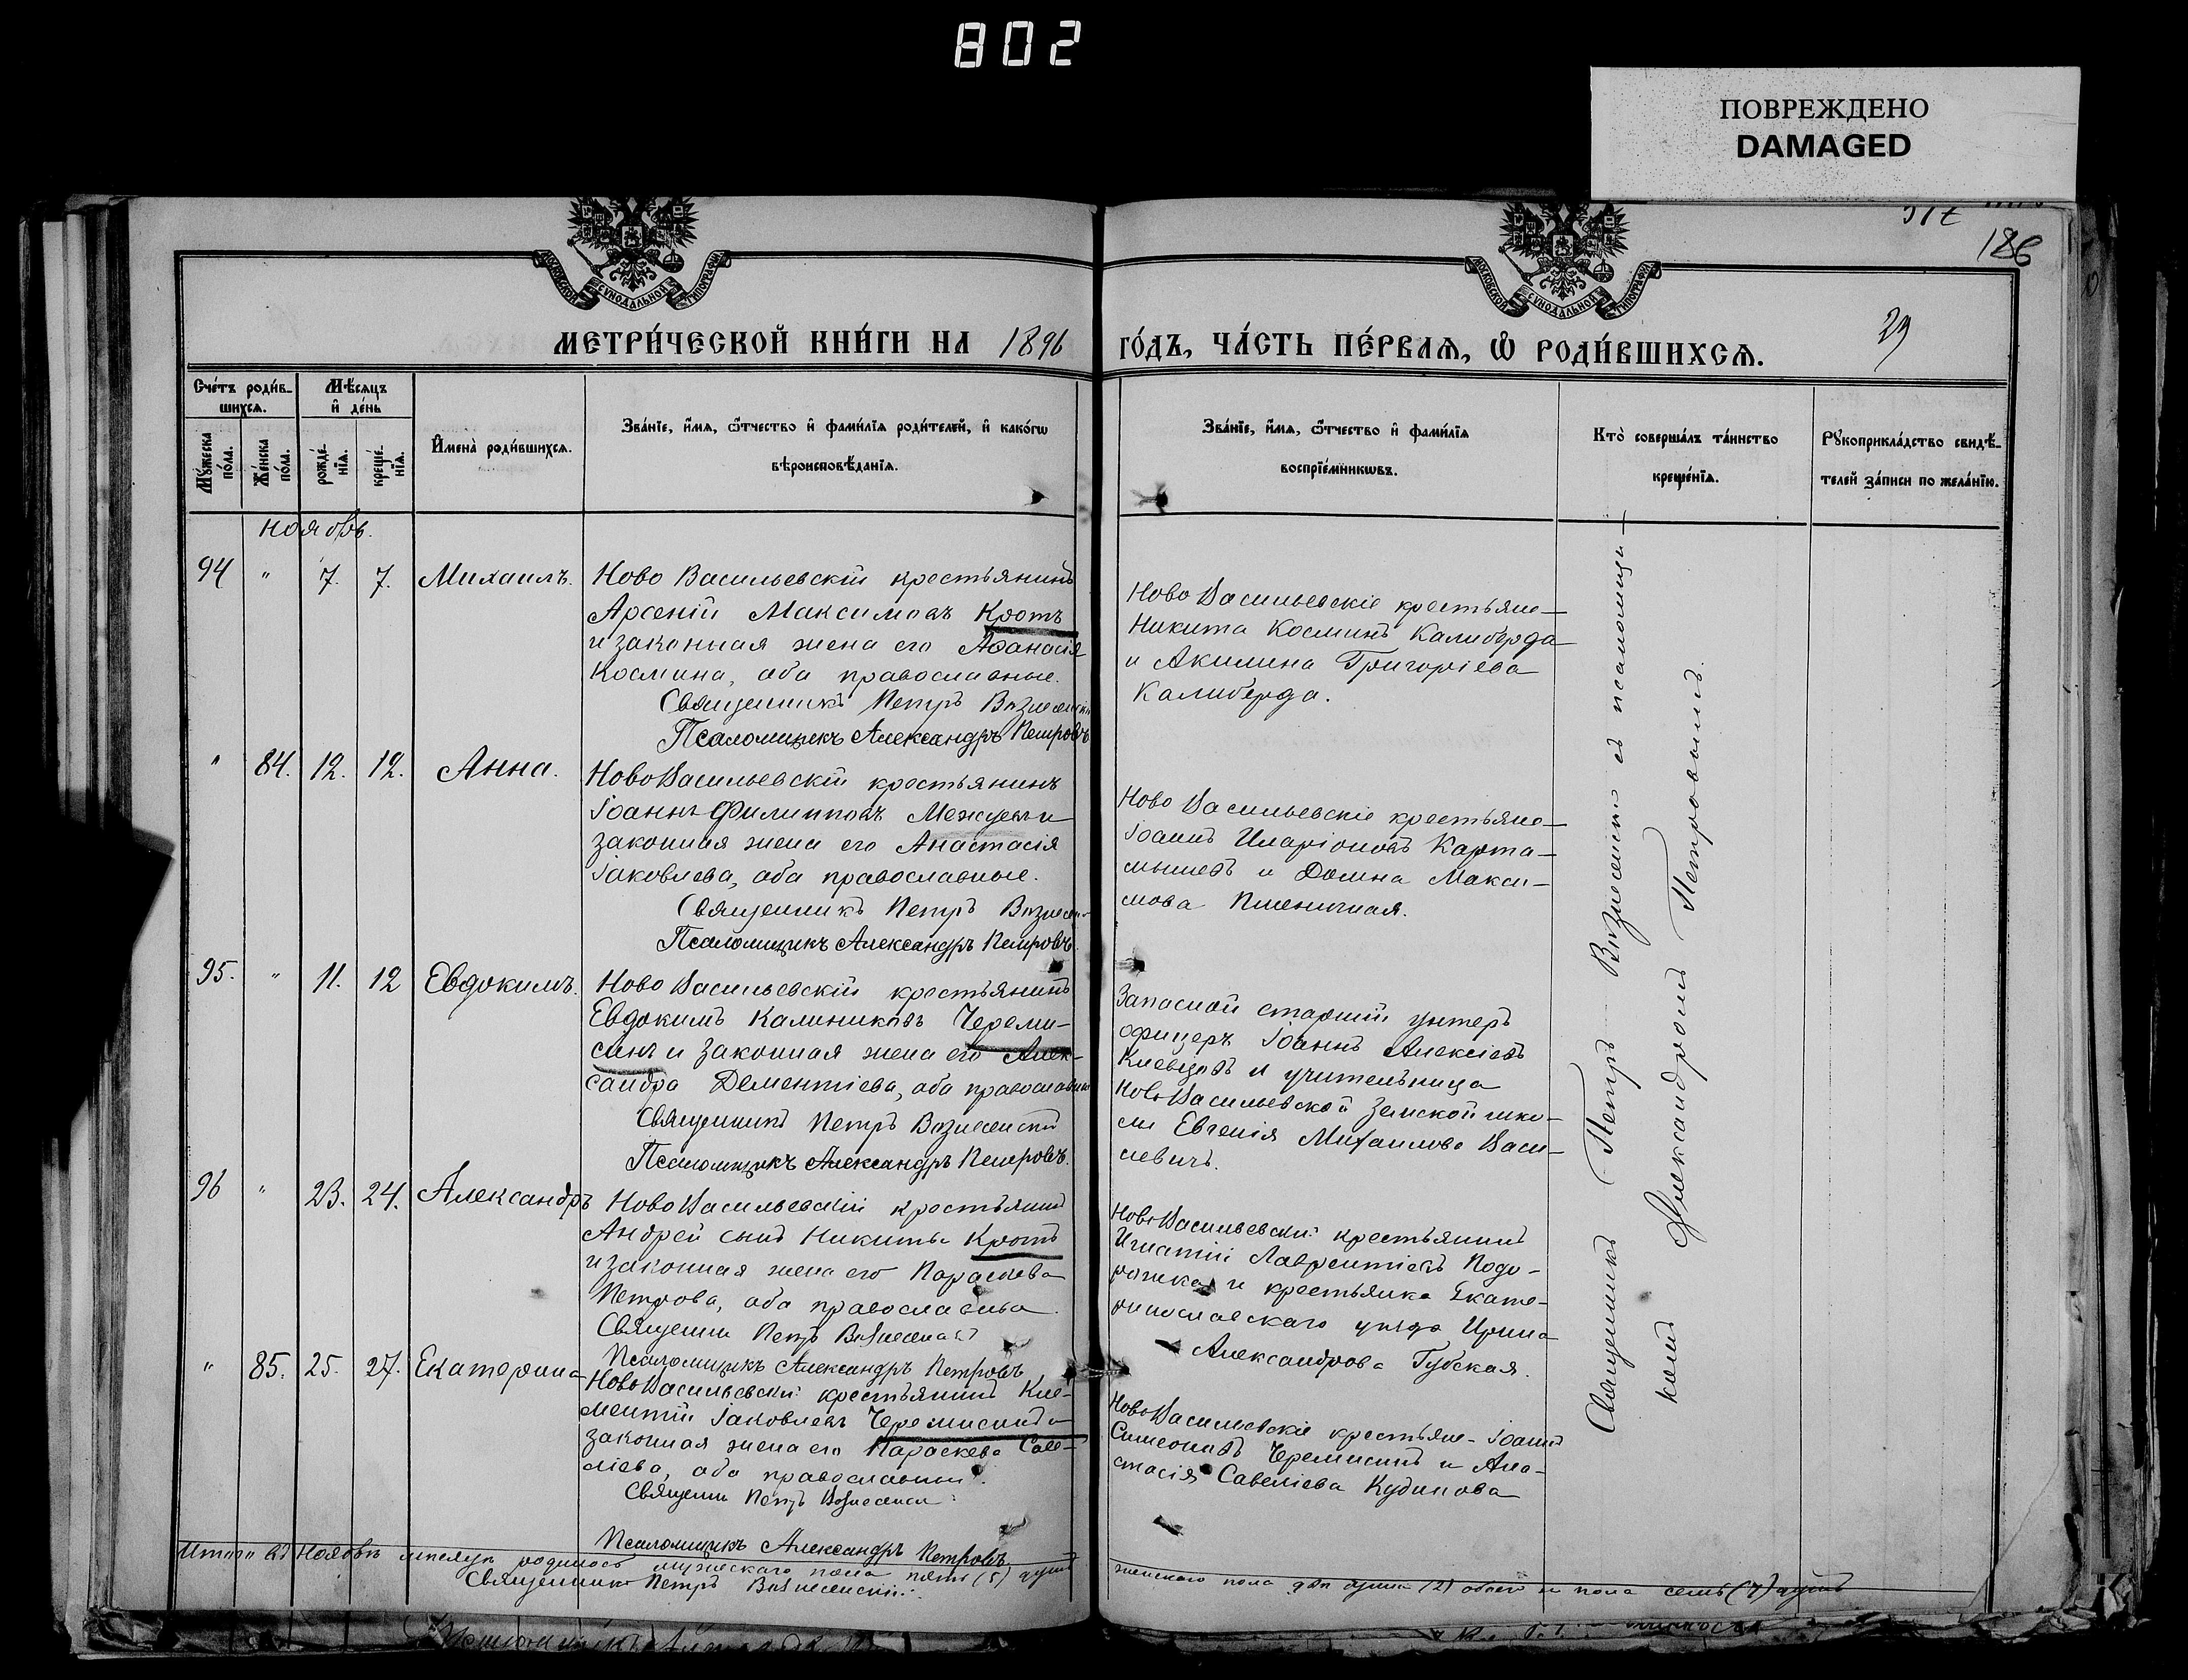 802
ПОВРЕЖДЕНО
DAMAGED
186
МОСКОВСКОЙ СѴНОДАЛЬНОЙ ТИПОГРАФІИ
МОСКОВСКОЙ СѴНОДАЛЬНОЙ ТИПОГРАФІИ
МЕТРИ́ЧЕСКОЙ КНИ́ГИ НА 1896
ГО́ДЪ, ЧА́СТЬ ПЕ́РВАѦ, Ѡ҆ РОДИ́ВШИХСѦ.
29
Сче́тъ роди́в-
шихсѧ.
Мѣ́сѧцъ
и҆ де́нь
Мꙋ́жеска
по́ла.
Же́нска
по́ла.
рожде́-
нїѧ.
креще́-
нїѧ.
И҆мена̀ роди́вшихсѧ.
Зва́нїе, и҆́мѧ, ѻ҆́тчество и҆ фами́лїѧ роди́телей, и҆ како́гѡ
вѣроисповѣ́данїѧ.
Зва́нїе, и҆́мѧ, ѻ҆́тчество и҆ фами́лїѧ
воспрїе́мникѡвъ.
Кто̀ соверша́лъ та́инство
креще́нїѧ.
Рꙋкоприкла́дство свидѣ́-
телей за́писи по жела́нїю.
Ноябрь.
94 " 7. 7. Михаилъ.
Ново Васильевскій крестьянинъ
Арсеній Максимовъ Кротъ
и законная жена его Афанасія
Космина, оба православные.
Священникъ Петръ Вознесенскій
Псаломщикъ Александръ Петровъ
Ново Васильевскіе крестьяне
Никита Косминъ Калиберда
и Акилина Григоріева
Калиберда.
" 84. 12. 12. Анна.
Ново Васильевскій крестьянинъ
Іоаннъ Филипповъ Межуевъ и
законная жена его Анастасія
Іаковлева, оба православные.
Священникъ Петръ Вознесен
Псаломщикъ Александръ Петровъ.
Ново Васильевскіе крестьяне
Іоаннъ Иларіоновъ Карта-
мышевъ и Домна Макси-
мова Пшеничная.
95. " 11. 12 Евдокимъ.
Ново Васильевскій крестьянинъ
Евдокимъ Калиниковъ Череми-
синъ и законная жена его Алек-
сандра Дементіева, оба православные
Священникъ Петръ Вознесенскій
Псаломщикъ Александръ Петровъ.
Запасной старшій унтеръ
офицеръ Іоаннъ Алексіевъ
Киевцовъ и учительница
Ново Васильевской земской шко-
лы Евгенія Михаилова Васи-
левичъ.
96 " 23. 24. Александръ
Ново Васильевскій крестьянинъ
Андрей сынъ Никиты Кротъ
и законная жена его Параскева
Петрова, оба православные.
Священни Петръ Вознесенскі
Псаломщикъ Александръ Петровъ
Ново Васильевскій крестьянинъ
Игнатій Лаврентіевъ Подо-
рожка и крестьянка Екате-
ринославскаго уезда Ирина
Александрова Губская.
" 85. 25. 27. Екатерина
Ново Васильевскій крестьянинъ Кле-
ментій Іаковлевъ Черемисинъ и
законная жена его Параскева Саве-
ліева, оба православные.
Священни Петръ Вознесенск
Псаломщикъ Александръ Петровъ
Ново Васильевскіе крестьяне Іоаннъ
Симеоновъ Черемисинъ и Ана-
стасія Савеліева Кудинова
Священникъ Петръ Вознесенскій съ псаломщи-
комъ Александромъ Петровымъ.
Итого въ Ноябрѣ мѣсяцѣ родилось мужескаго пола пять (5) душъ
женскаго пола двѣ души (2) обоего пола семь (7) душъ
Священникъ Петръ Вознесенскій